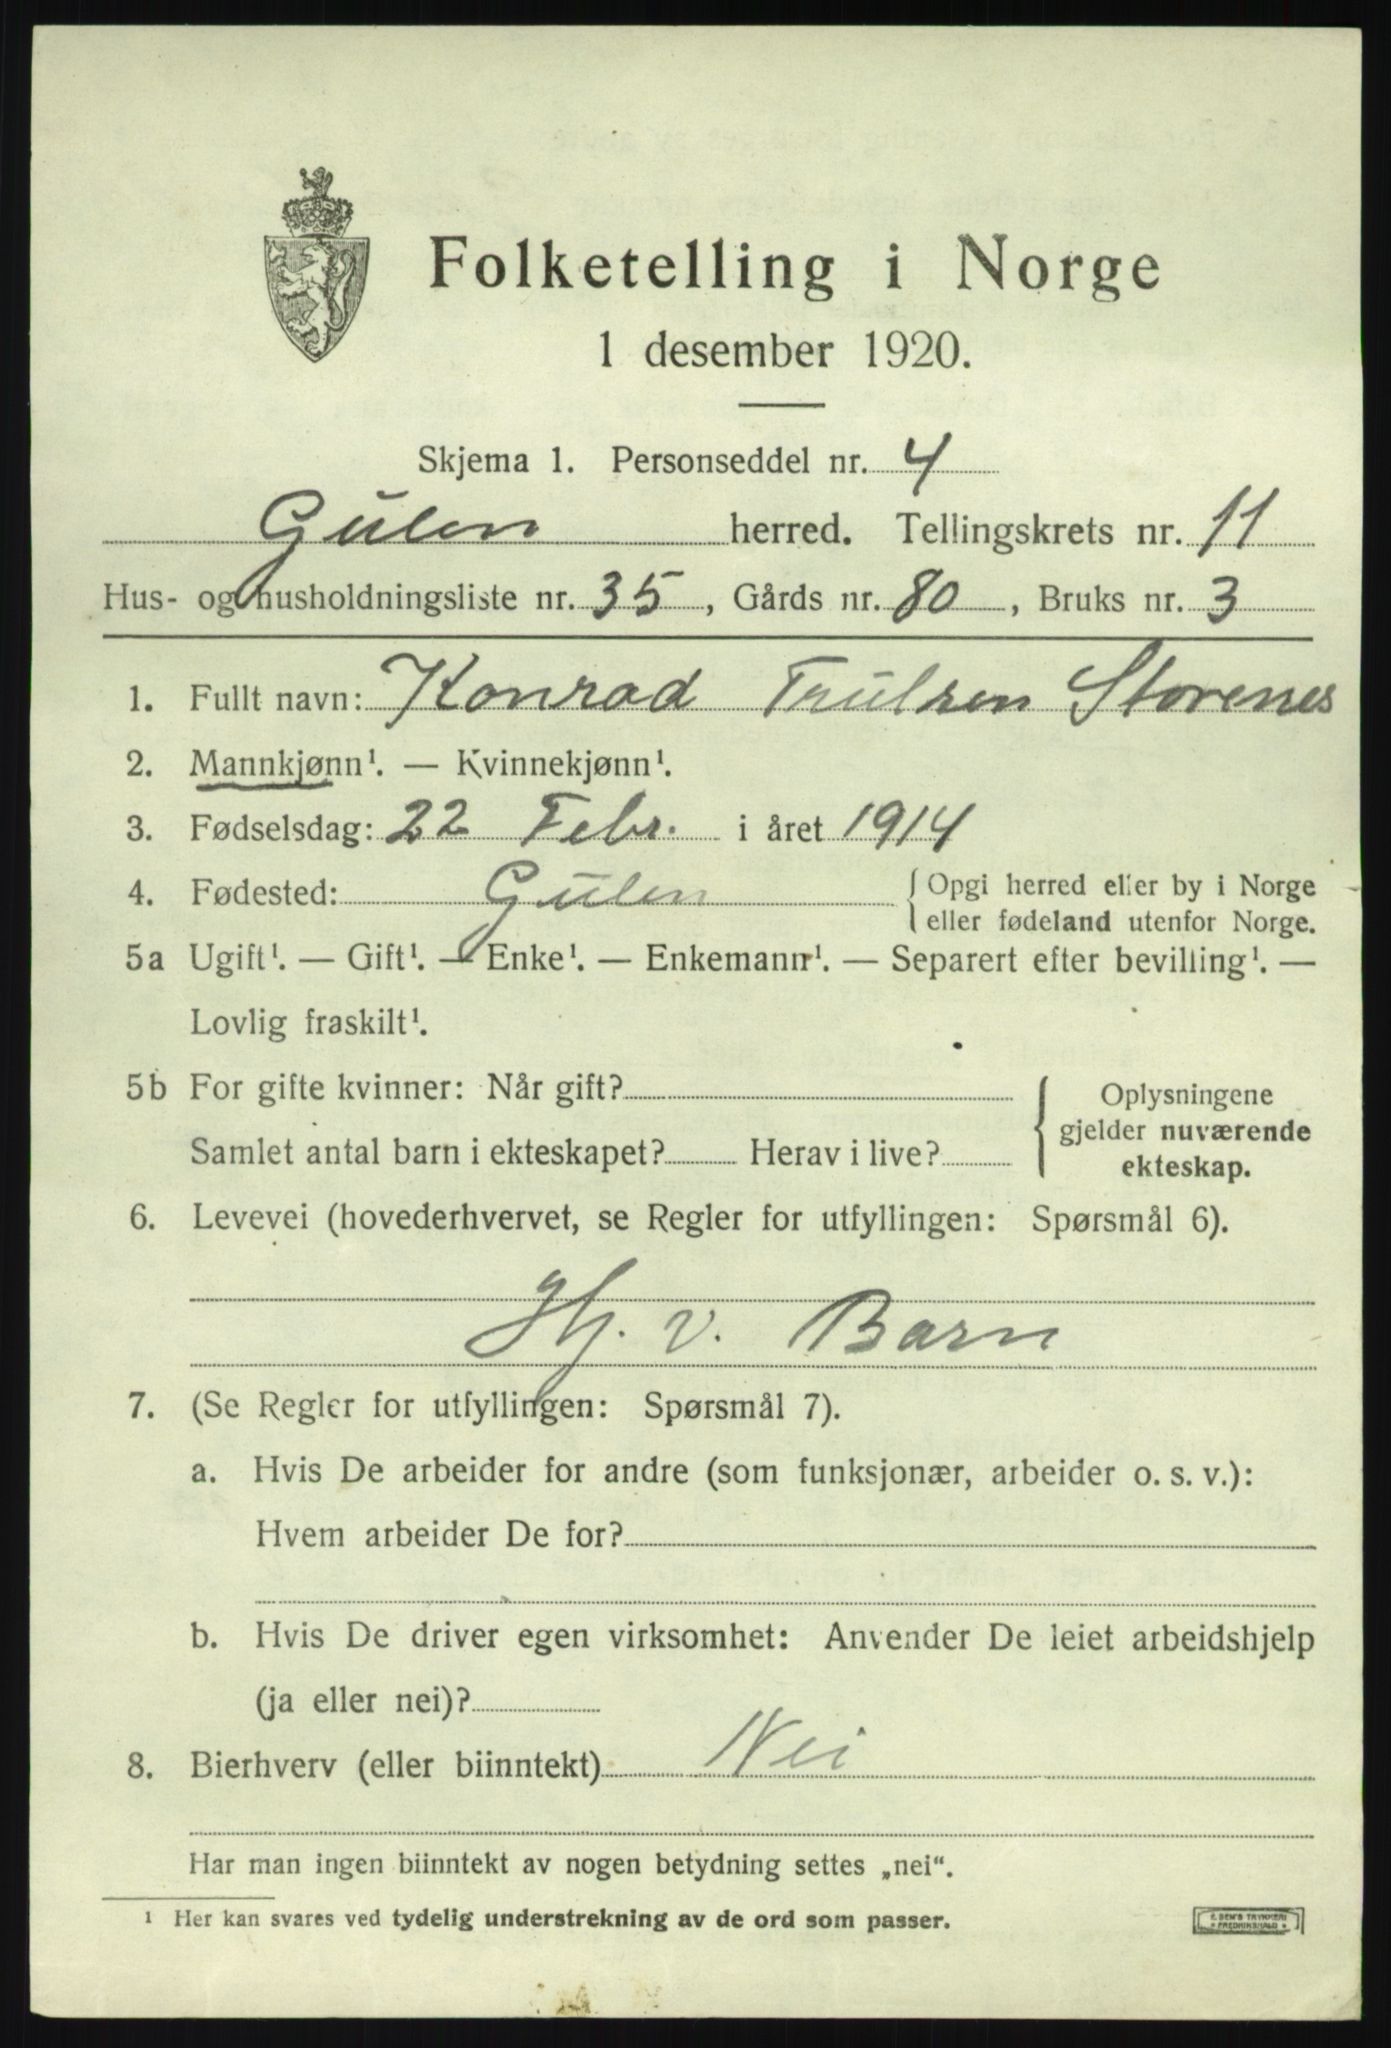 Folketelling i Norge
1 desember 1920.
Skjema 1. Personseddel nr. 4
Gulen herred. Tellingskrets nr. 11
Hus- og husholdningsliste nr. 35, Gårds nr. 80, Bruks nr. 3
1. Fullt navn: Konrad Trulsen Storenes
2. Mannkjønn¹. — Kvinnekjønn¹.
3. Fødselsdag: 22 Febr. i året 1914
4. Fødested: Gulen { Opgi herred eller by i Norge
eller fødeland utenfor Norge.
5a Ugift¹. — Gift¹. — Enke¹. — Enkemann¹. — Separert efter bevilling¹. —
Lovlig fraskilt¹.
5b For gifte kvinner: Når gift?
Samlet antal barn i ekteskapet? Herav i live?
{ Oplysningene
gjelder nuværende
ekteskap.
6. Levevei (hovederhvervet, se Regler for utfyllingen: Spørsmål 6).
Hj. v. Barn
7. (Se Regler for utfyllingen: Spørsmål 7).
a. Hvis De arbeider for andre (som funksjonær, arbeider o. s. v.):
Hvem arbeider De for?
b. Hvis De driver egen virksomhet: Anvender De leiet arbeidshjelp
(ja eller nei)?
8. Bierhverv (eller biinntekt) Nei
Har man ingen biinntekt av nogen betydning settes „nei“.
¹ Her kan svares ved tydelig understrekning av de ord som passer.
TRYKKERI
FREDRIKSHALD